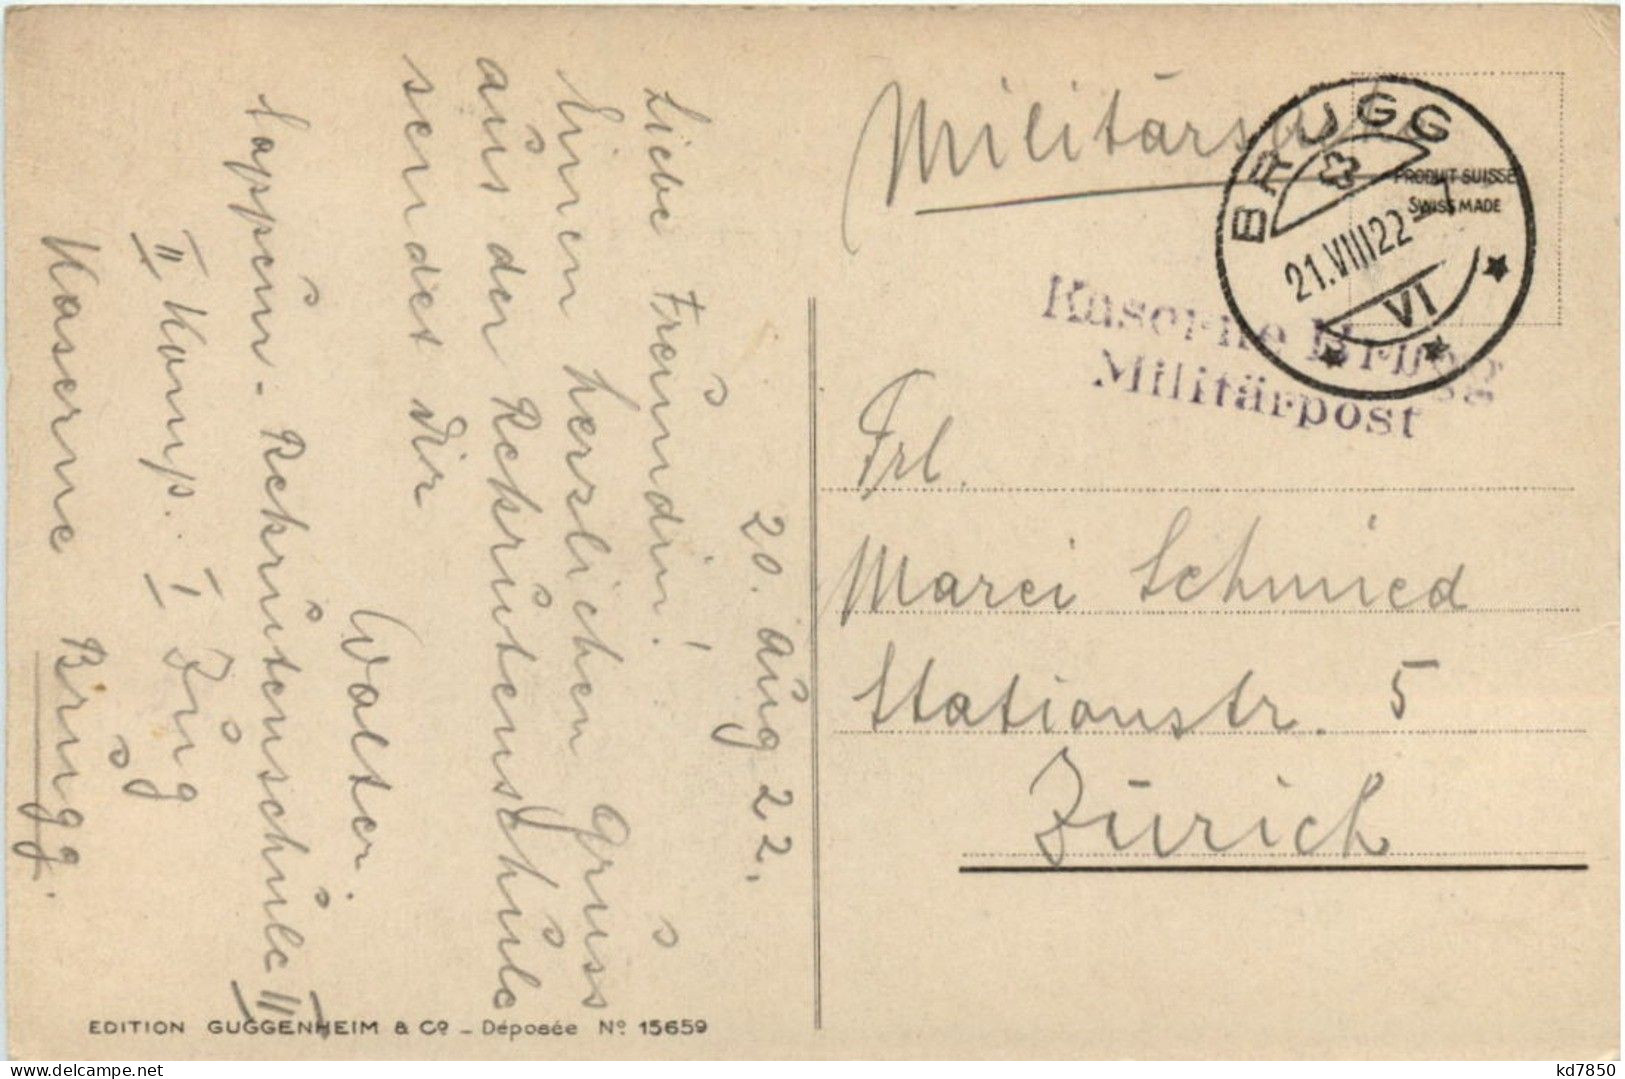 20. Aug 22.
Liebe Freundin!
Einen herzlichen Gruss
aus der Rekrutenschule
sendet Dir
Walter.
Sappeur-Rekrutenschule II
II Komp. I Zug
Kaserne Brugg.
EDITION GUGGENHEIM & Co – Déposée No 15659
BRUGG
21.VIII 22–7
VI
PRODUIT SUISSE
SWISS MADE
Kaserne Brugg
Militärpost
Frl.
Marei Schmied
Stationstr. 5
Zürich
kd7850